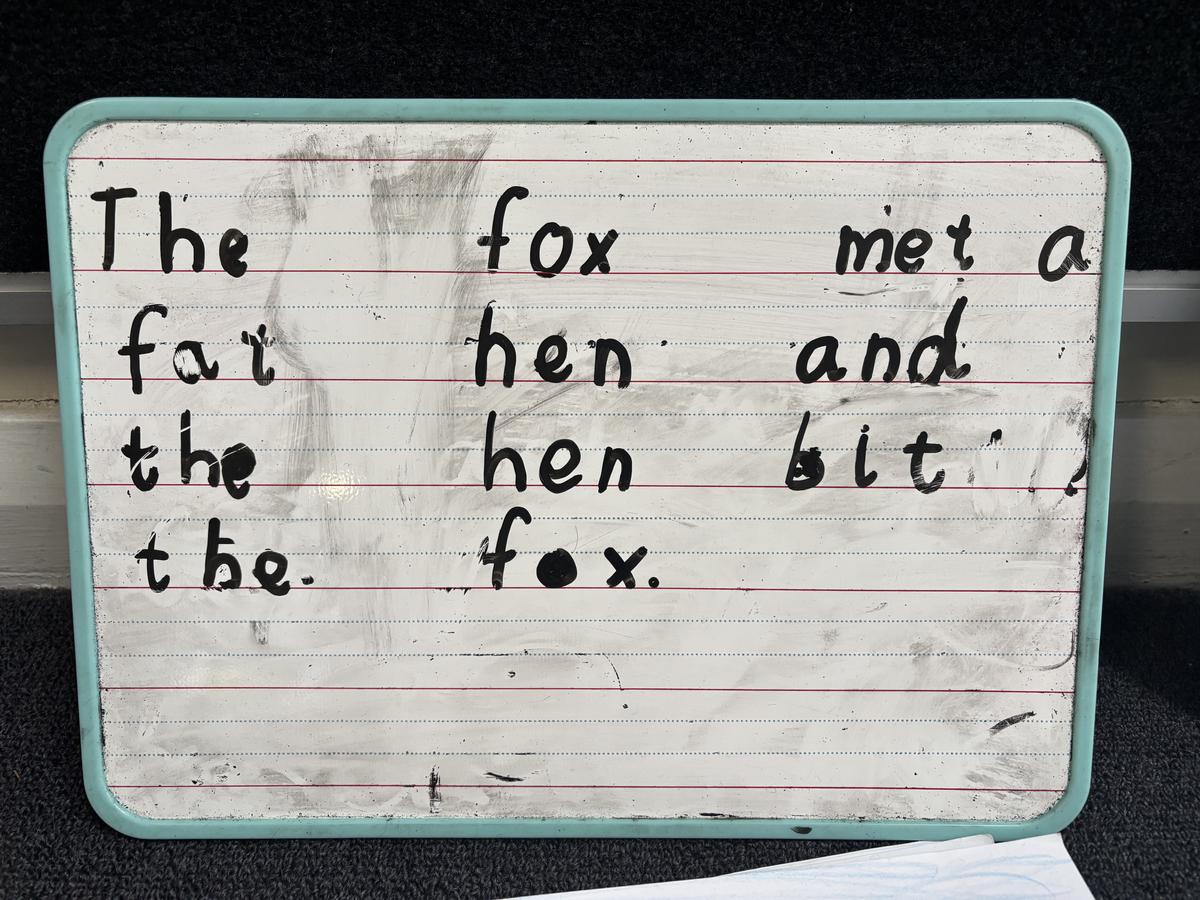 The fox met a
fat hen and
the hen bit
the. fox.